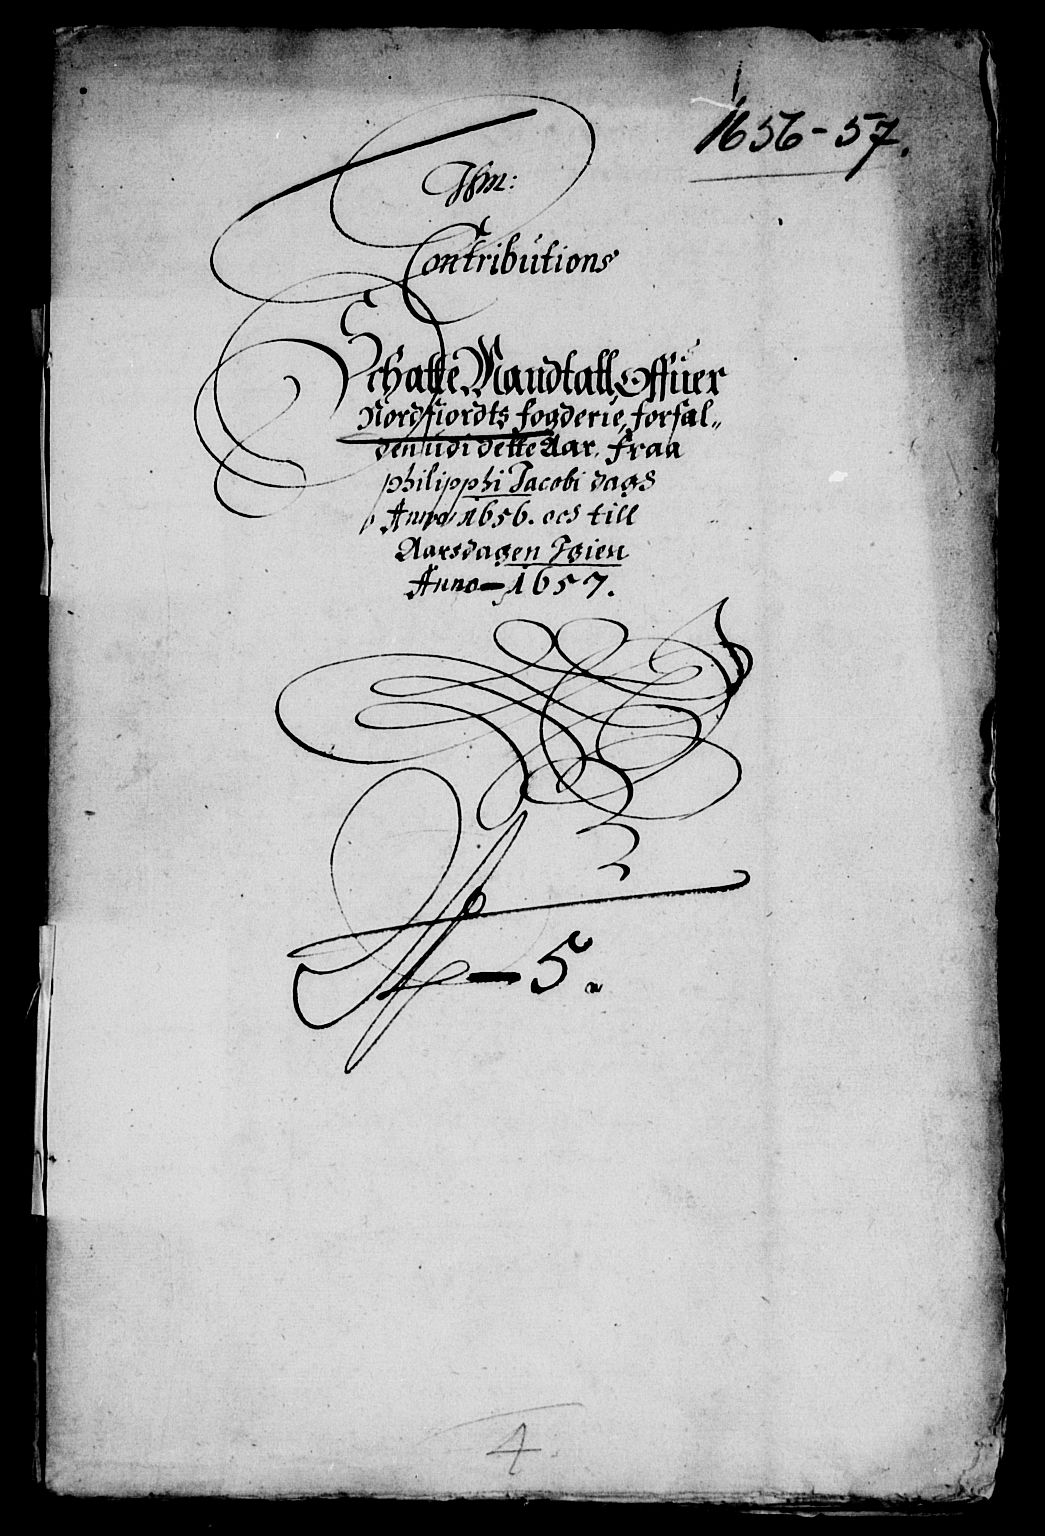 1656-57.
Contributions
Schatte Mandtall Offuer
Nordfiordts fogderie, forfal„
den udi dette Aar. fraa
philipphi Jacobi dags
Anno 1656. och till
Aarsdagen Igien
Anno 1657.
5.
4